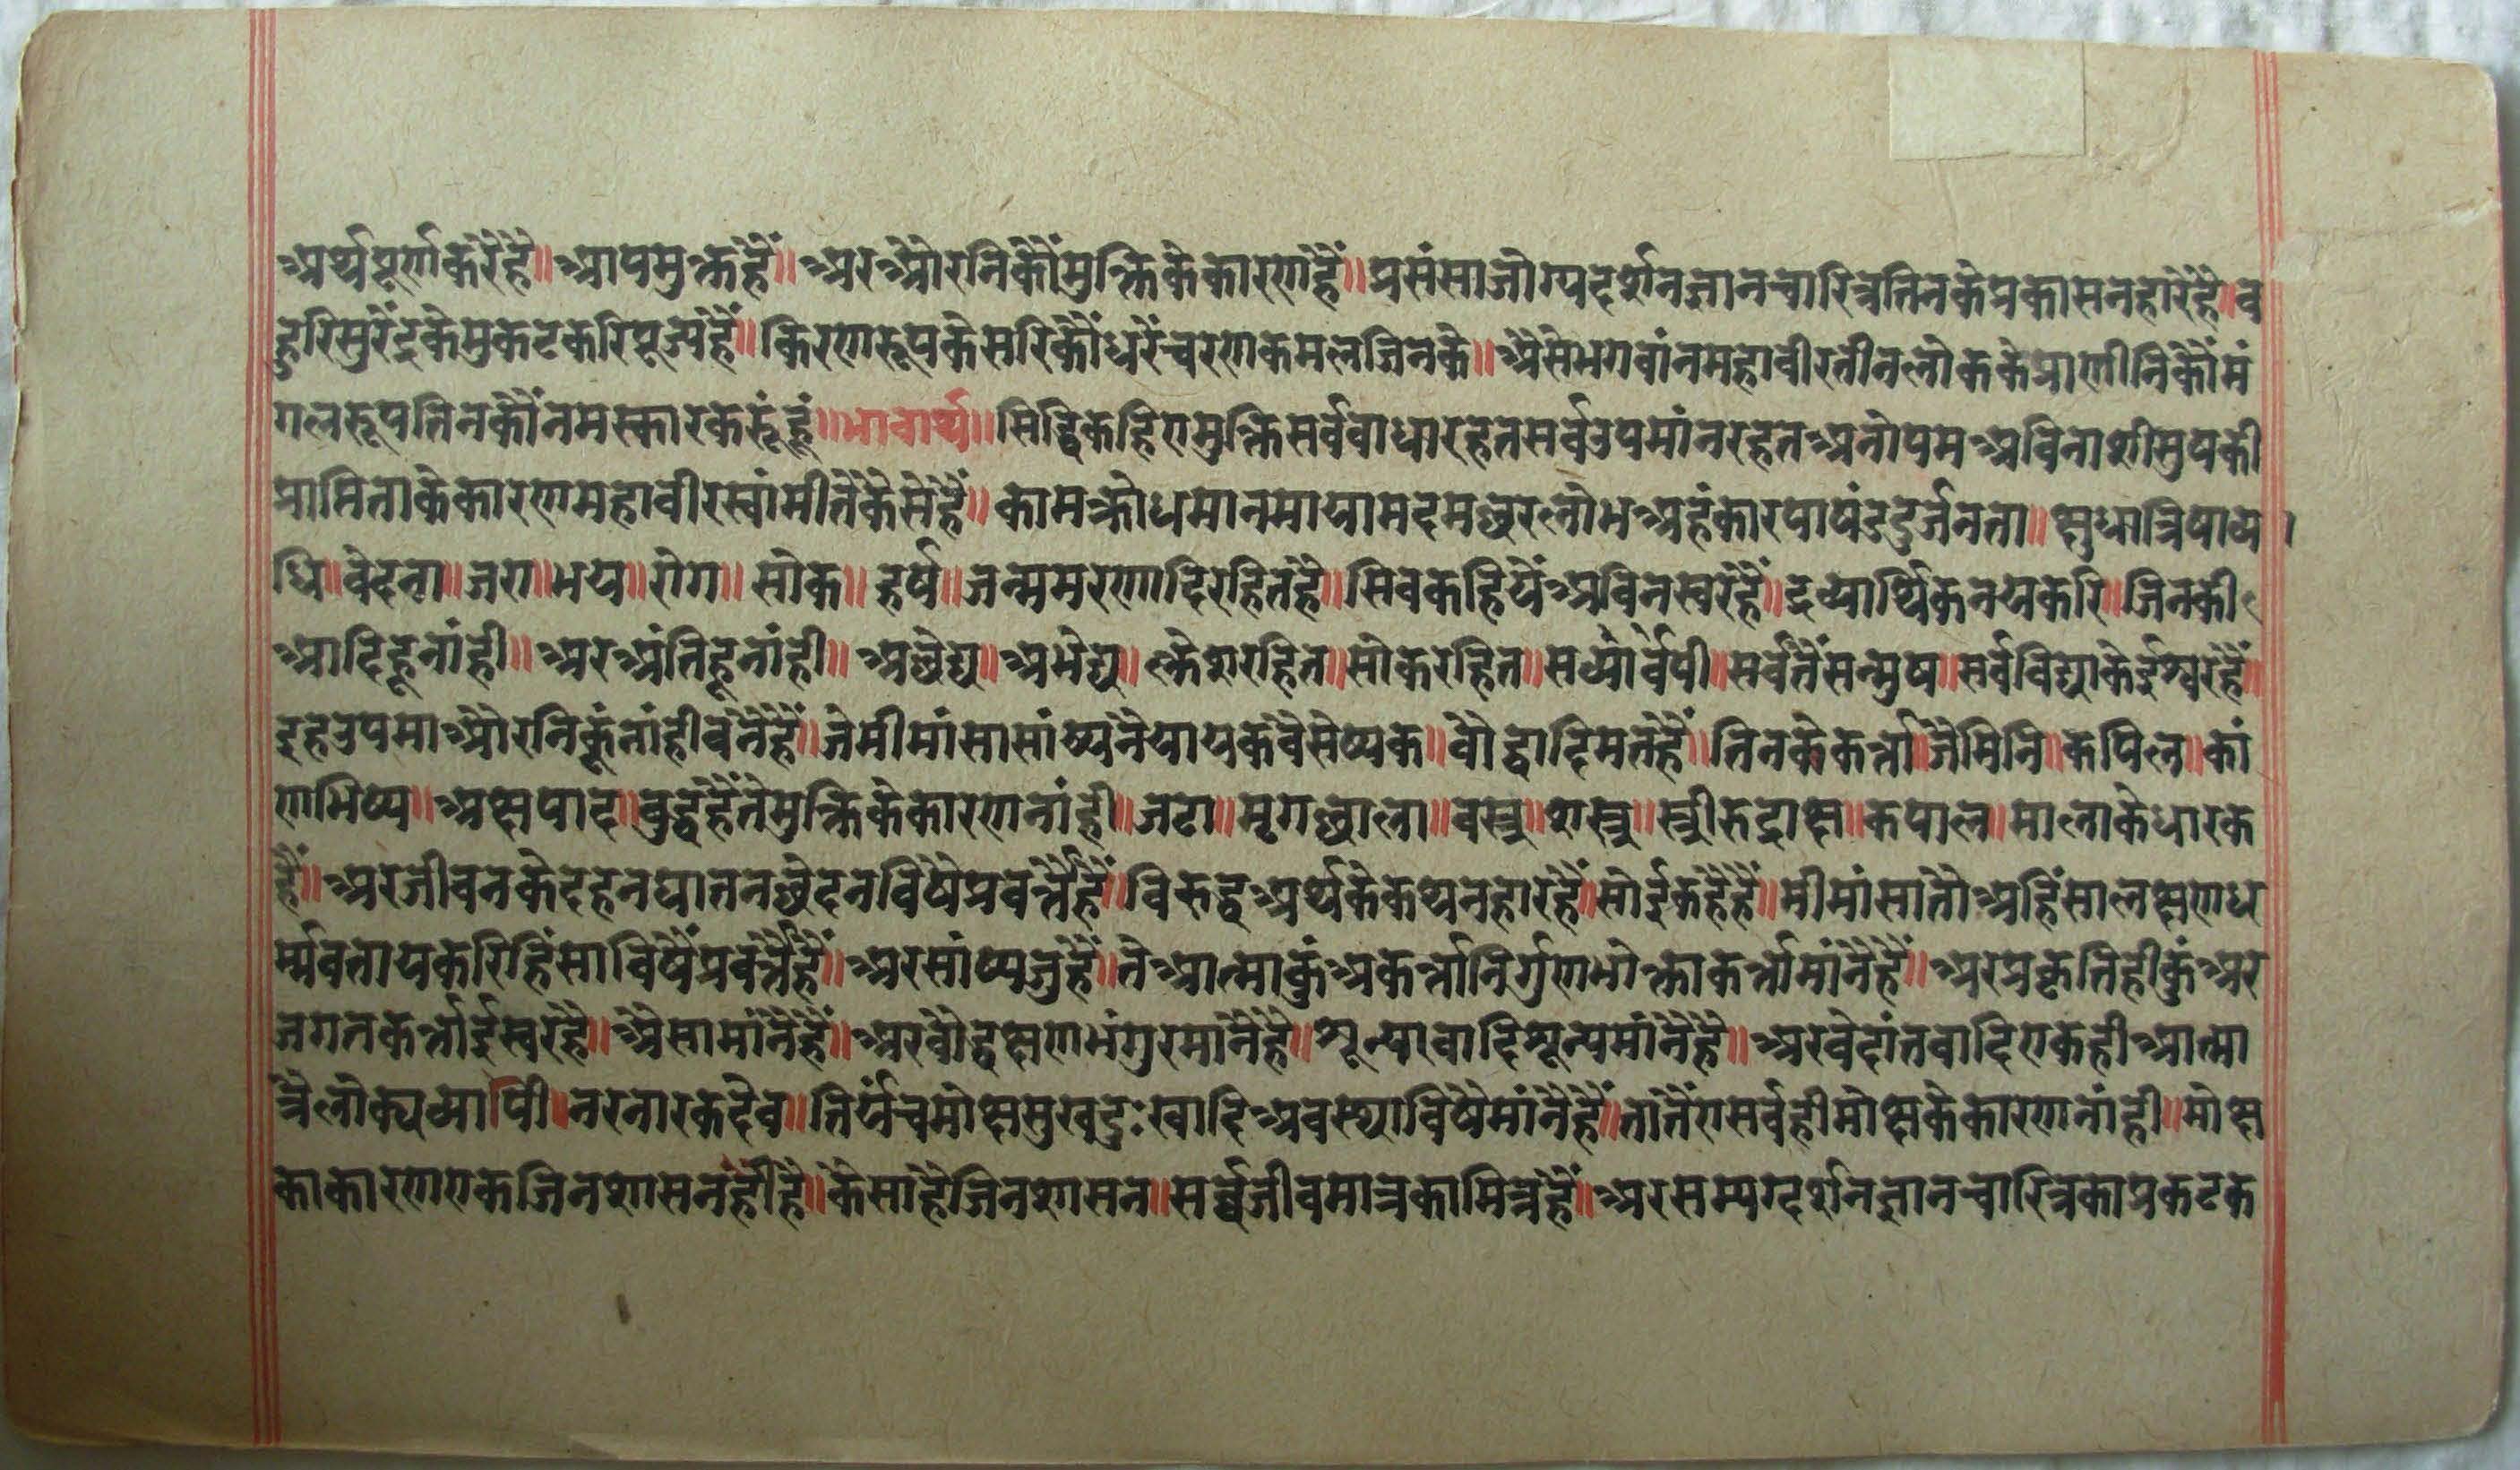 अर्थपूर्णकरेहै॥आपमुक्तहैं॥अरऔरनिकौंमुक्तिकेकारणहैं॥प्रसंसाजोग्यदर्शनज्ञानचारित्रतिनकेप्रकासनहारेहै॥व
हुरिसुरेंद्रकेमुकटकरिपूज्यहैं॥किरणरूपकेसरिकौंधरेंचरणकमलजिनके॥अैसेभगवांनमहावीरतीनलोककेप्राणीनिकौंमं
गलरूपतिनकौंनमस्कारकरूंहूं॥भावार्थ॥सिद्धिकहिएमुक्तिसर्ववाधारहतसर्वउपमांनरहतअनोपमअविनाशीसुषकी
प्राप्तिताकेकारणमहावीरस्वांमीतेकैसेहैं॥कामक्रोधमानमायामदमछरलोभअहंकारपाषंडदुर्जनता॥क्षुधात्रिषाव्या
धि॥वेदना॥जरा॥भय॥रोग॥सोक॥हर्ष॥जन्ममरणादिरहितहै॥सिवकहियेंअविनस्वरहैं॥द्रव्यार्थिकनयकरि॥जिनकी
आदिहूनांही॥अरअंतिहूनांही॥अछेद्य॥अभेद्य॥क्लेशरहित॥सोकरहित॥सर्व्यार्वेपी॥सर्वतैंसन्मुष॥सर्वविद्याकेईश्वरहैं॥
इहउपमाऔरनिकूंनांहीवनेंहैं॥जेमीमांसासांख्यनैयायकवैसेष्यक॥वौद्धादिमतहैं॥तिनकेकर्त्ता॥जैमिनि॥कपिल॥कां
णभिष्य॥अक्षपाद॥वुद्धहैंतेमुक्तिकेकारणनांही॥जटा॥मृगछाला॥वस्त्र॥शस्त्र॥स्त्रीरुद्राक्ष॥कपाल॥मालाकेधारक
हैं॥अरजीवनकेदहनघातनछेदनविषेप्रवर्त्तैंहैं॥विरुद्धअर्थकेकथनहारहैं॥सोईकहैहैं॥मीमांसातोअहिंसालक्षणध
र्म्मवतायकरिहिंसाविषेंप्रवर्त्तैहैं॥अरसांष्यजुहैं॥तेआत्माकुंअकर्त्तानिर्गुणभोक्ताकर्त्तामांनेंहैं॥अरप्रकृतिहीकुंअर
जगतकर्त्ताईस्वरहै॥अैसामांनेंहैं॥अरवौद्धक्षणभंगुरमांनेंहै॥शून्यवादिशून्यमांनेंहै॥अरवेदांतवादिएकहीआत्मा
त्रैलोक्यव्यापी॥नरनारकदेव॥तिर्यंचमोक्षसुखदुःखादिअवस्थाविषेंमांनेंहैं॥तातैंएसर्वहीमोक्षकेकारणनांही॥मोक्ष
काकारणएकजिनशासनंहीहै॥कैसाहैजिनशासन॥सर्व्वजीवमात्रकामित्रहैं॥अरसम्यग्दर्शनज्ञानचारित्रकाप्रकटक